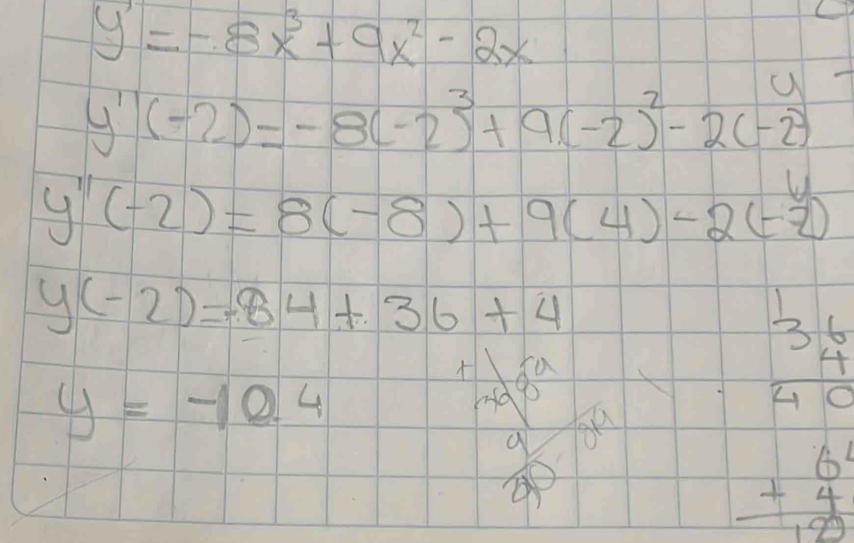 y' = -8x³ + 9x² - 2x
y'(-2) = -8(-2)³ + 9(-2)² - 2(-2)
y'(-2) = 8(-8) + 9(4) - 2(-2)
y(-2) = -64 + 36 + 4
y = -104
1
36
4
40
+ 4